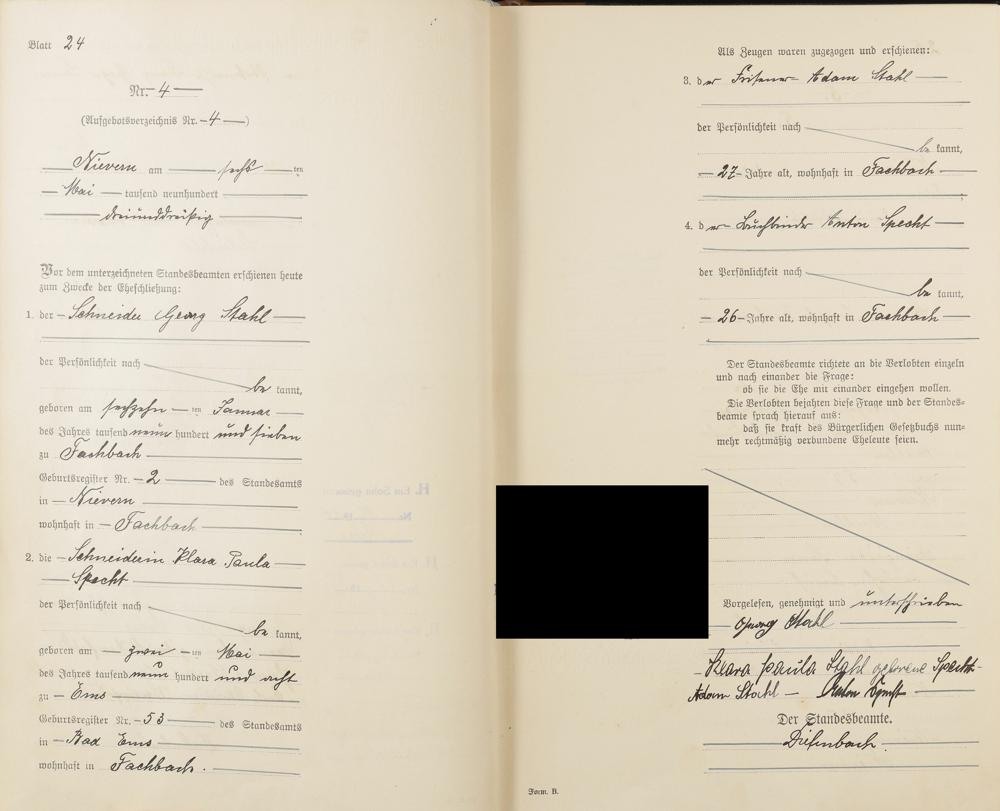 Blatt 24
Nr. 4
(Aufgebotsverzeichnis Nr. 4)
Nievern am sechs ten
Mai tausend neunhundert
dreiunddreißig
Vor dem unterzeichneten Standesbeamten erschienen heute
zum Zwecke der Eheschließung:
1. der Schneider Georg Stahl
der Persönlichkeit nach
be kannt,
geboren am sechzehn ten Januar
des Jahres tausend neun hundert und sieben
zu Fachbach
Geburtsregister Nr. 2 des Standesamts
in Nievern
wohnhaft in Fachbach
2. die Schneiderin Klara Paula
Specht
der Persönlichkeit nach
be kannt,
geboren am zwei ten Mai
des Jahres tausend neun hundert und acht
zu Ems
Geburtsregister Nr. 53 des Standesamts
in Bad Ems
wohnhaft in Fachbach.
Als Zeugen waren zugezogen und erschienen:
3. der Friseur Adam Stahl
der Persönlichkeit nach
be kannt,
27 Jahre alt, wohnhaft in Fachbach
4. der Buchbinder Anton Specht
der Persönlichkeit nach
be kannt,
26 Jahre alt, wohnhaft in Fachbach
Der Standesbeamte richtete an die Verlobten einzeln
und nach einander die Frage:
ob sie die Ehe mit einander eingehen wollen.
Die Verlobten bejahten diese Frage und der Standes-
beamte sprach hierauf aus:
daß sie kraft des Bürgerlichen Gesetzbuchs nun-
mehr rechtmäßig verbundene Eheleute seien.
Vorgelesen, genehmigt und unterschrieben
Georg Stahl
Klara Paula Stahl geborene Specht
Adam Stahl Anton Specht
Der Standesbeamte.
Diefenbach.
Form. B.